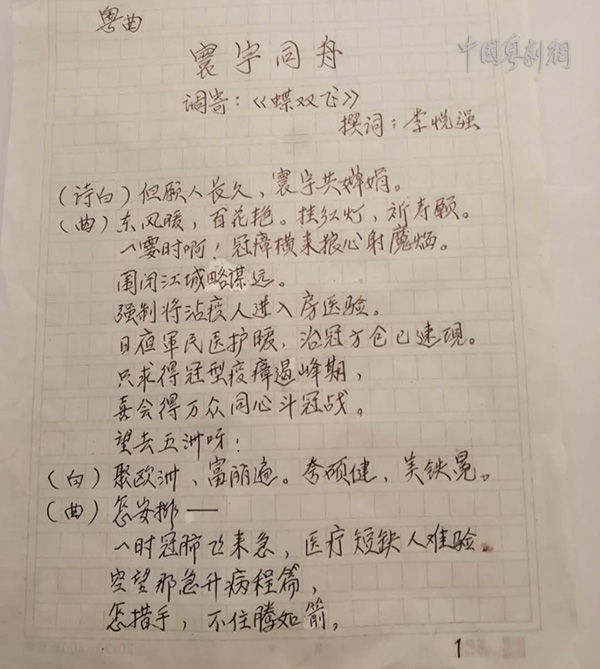 粤曲
中国粤剧網
寰宇同舟
调寄：《蝶双飞》
撰词：李悦强
（诗白）但愿人长久，寰宇共婵娟。
（曲）东风暖，百花艳。挂红灯，祈寿愿。
一霎时啊！冠瘴横来狼心射魔焰。
围闭江城略谋远。
强制将沾疫人进入房医验。
日夜军民医护暖，治冠方仓已速现。
只求得冠型疫瘴遏峰期，
喜会得万众同心斗冠战。
望去五洲呀！
（白）聚欧洲，富丽遍。夸硕健，美铁冕。
（曲）怎安排——
一时冠肺飞来急，医疗短缺人难验。
空望那急升病程篇，
怎措手，不住腾如箭。
1